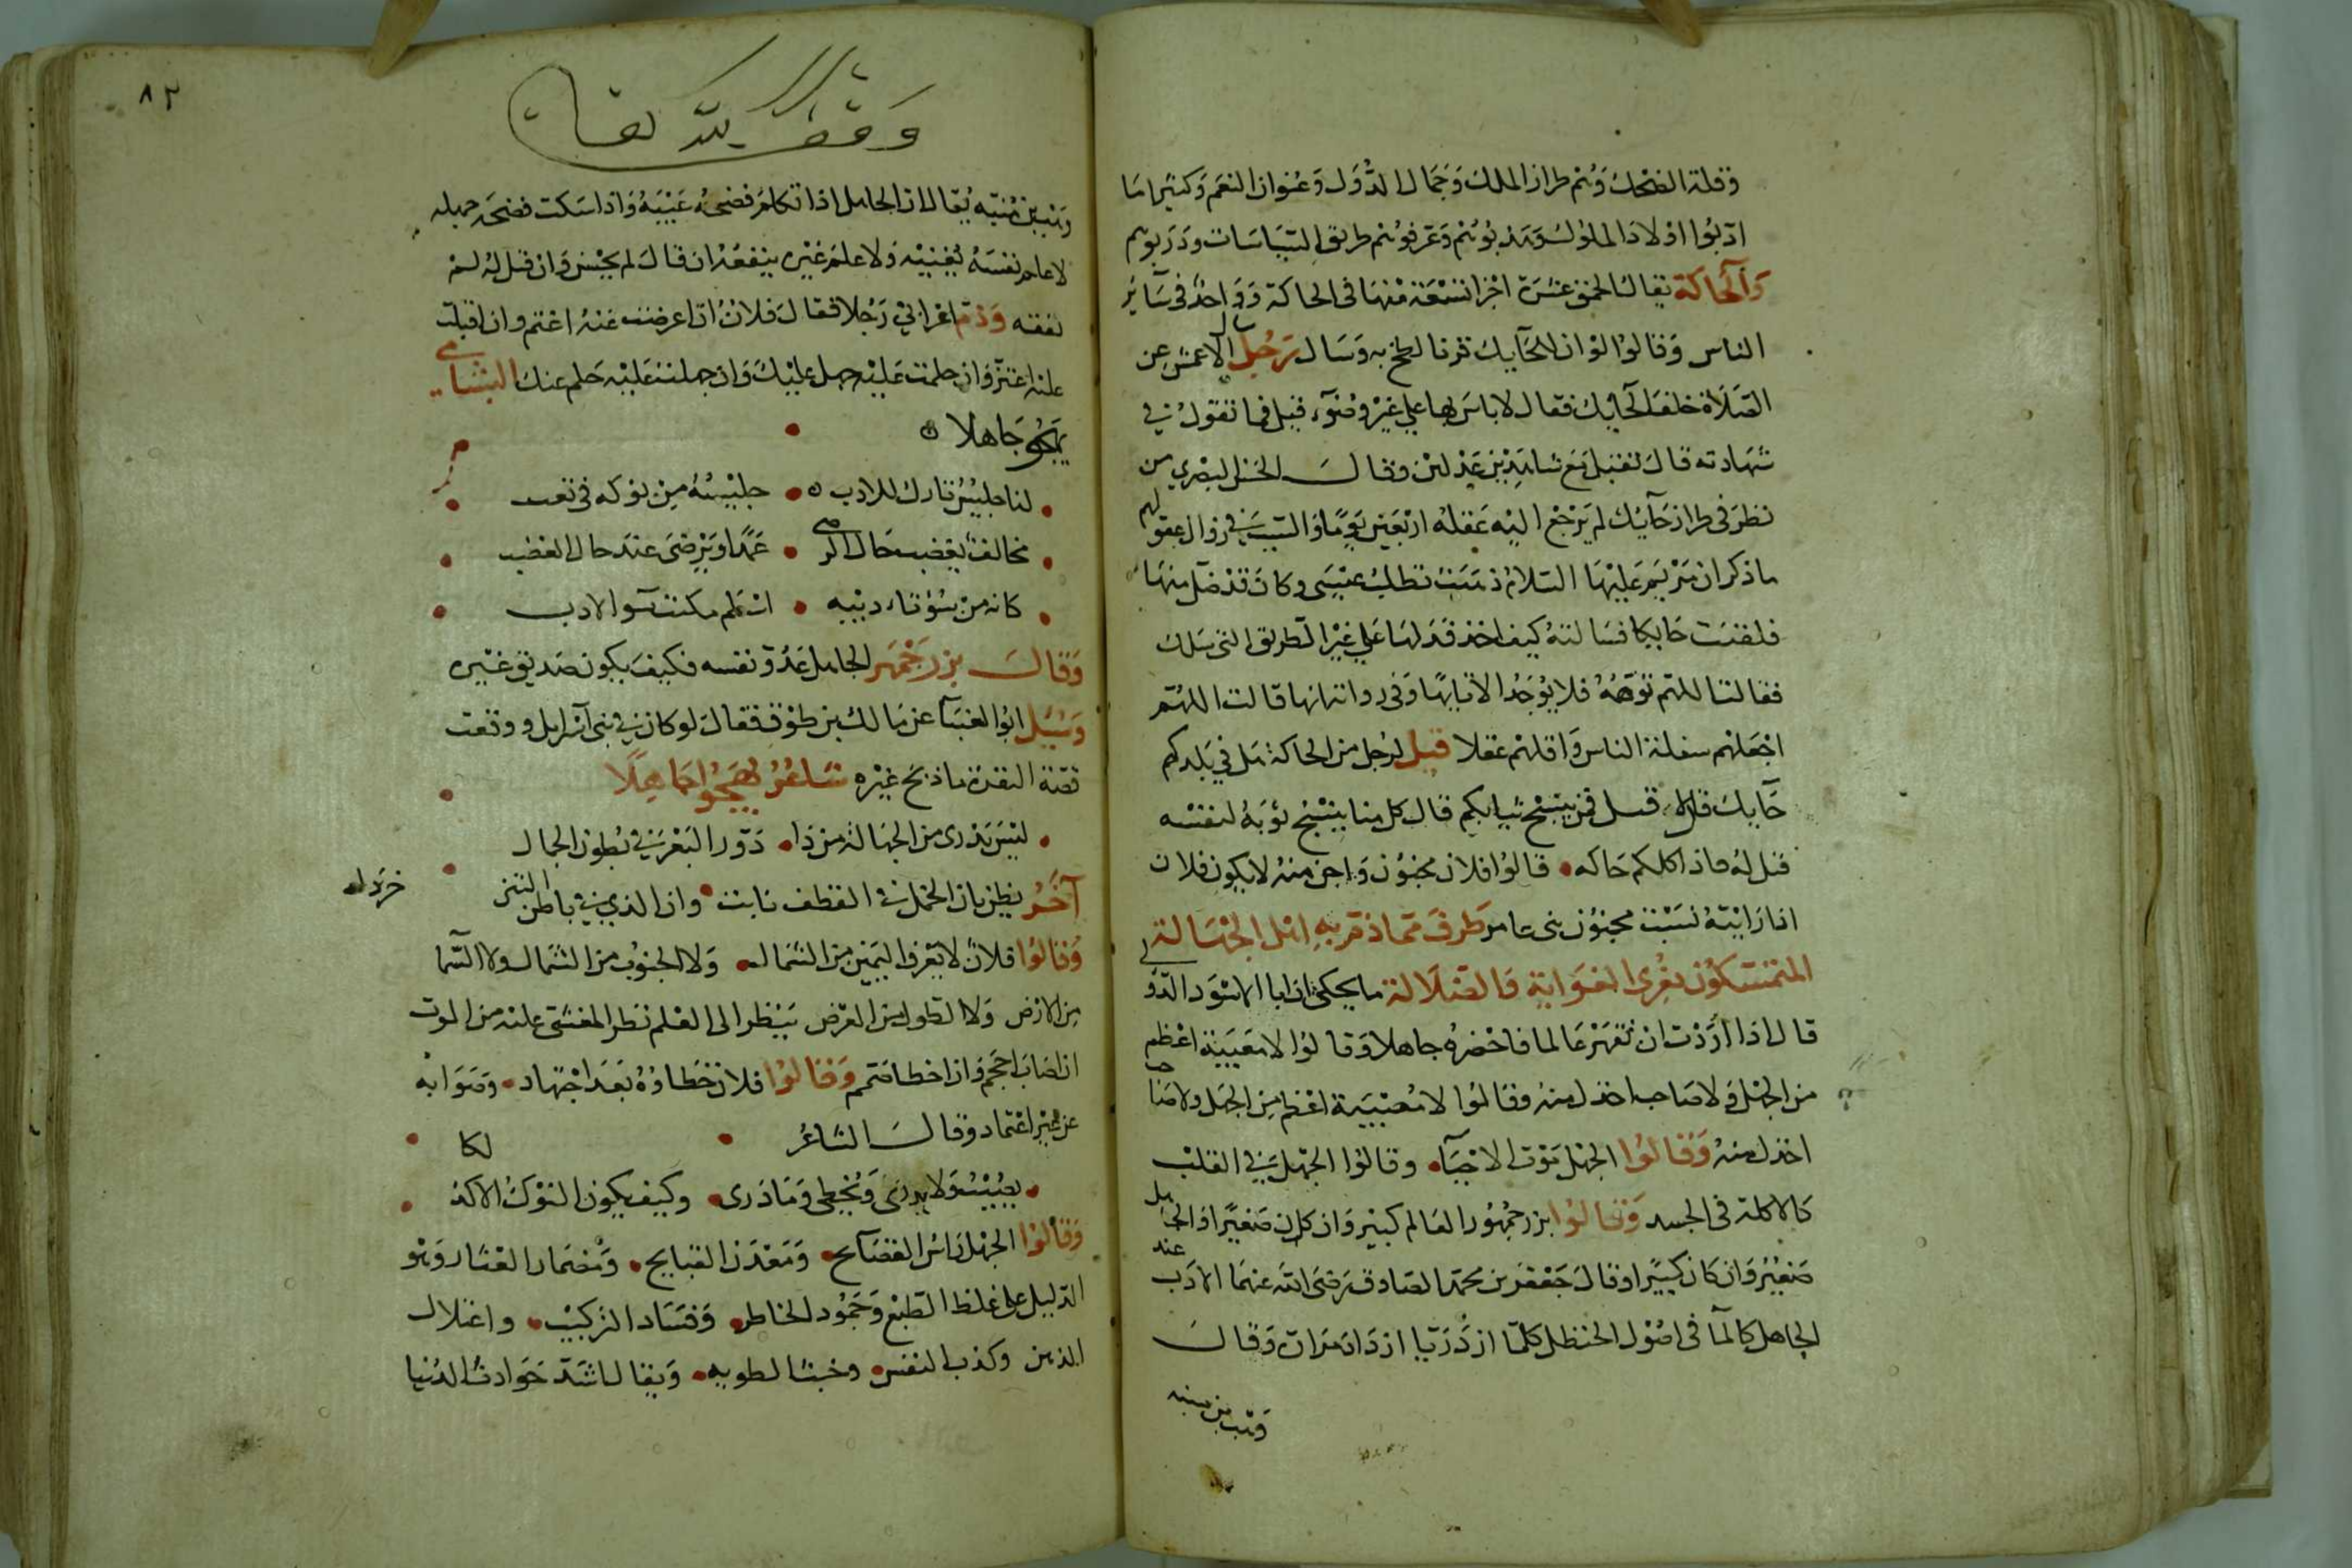 وقلة الضحك وهم طراز الملك وجمال الدول وعنوان النعم وكثيرا ما
ادبوا اولاد الملوك وهذبوهم وعرفوهم طريق السياسات ودربوهم
والحاكة يقال الحمق عشرة اجزا تسعة منها في الحاكة وواحد في سائر
الناس وقالوا لو ان لحايك وسال رجل الاعمش عن
الصلاة خلف الحايك فقال لا باس بها على غير وضوء قيل فما تقول في
شهادته قال تقبل مع شاهدين عدلين وقال الحسن البصري من
نظر في طراز حايك لم يرجع اليه عقله اربعين يوما والسبب في زوال عقولهم
ما ذكر ان مريم عليها السلام ذهبت تطلب عيسى وكان قد ضل منها
فلقيت حايكا فسالته كيف اخذ فدلها على غير الطريق التي سلك
فقالت اللهم توهه فلا يوجد الا تايها وفي رواية انها قالت اللهم
اجعلهم سفلة الناس واقلهم عقلا قيل لرجل من الحاكة هل في بلدكم
حايك قال لا قيل فمن ينسج ثيابكم قال كل منا ينسج ثوبه لنفسه
قيل له فاذا كلكم حاكه قالوا فلان مجنون واجن منه لا يكون فلان
اذا رايته نسيت مجنون بني عامر طرف مما ذم به اهل الجهالة
المتمسكون بعرى الغواية والضلالة ما يحكى ان ابا الاسود الدؤلي
قال اذا اردت ان تقهر عالما فاحضره جاهلا وقالوا لا مصيبة اعظم
من الجهل ولا صاحب اخذل منه وقالوا لا مصيبة اعظم من الجهل ولا صاحب
اخذل منه وقالوا الجهل موت الاحياء وقالوا الجهل في القلب
كالاكلة في الجسد وقالوا بزرجمهور العالم كبير وان كان صغيرا والجاهل
صغير وان كان كبيرا وقال جعفر بن محمد الصادق رضي الله عنهما الادب عند
الجاهل كالما في اصول الحنظل كلما ازدد ريا ازداد مرارة وقال
وهب بن منبه
٨٢
وقف لله تعالى
وهب بن منبه يقال ان الجاهل اذا تكلم فضحه عيبه واذا سكت فضحه جهله
لا علم نفسه يغنيه ولا علم غيره ينفعه ان قال لم يحسن وان قيل له لم
يفقه وذم اعرابي رجلا فقال فلان اذا اعرضت عنه اغتم وان اقبلت
عليه اغتر وان حلمت عليه جهل عليك وان جهلت عليه حلم عنك البسامي
يهجو جاهلا
لنا جليس تارك للادب جليسه من نوكه في تعب
مخالف يغضب حال الرضى عمدا ويرضى عند حال الغضب
كانه من سوء تاديبه اسلم مكتب سو الادب
وقال بزرجمهر الجاهل عدو نفسه فكيف يكون صديق غيره
وسيل ابوا العينا عن مالك بن طوق فقال لو كان في بني اسرائل ووقعت
قصة البقرة ما ذبح غيره شاعر يهجوا جاهلا
ليس يدرى من الجهالة من ذا دور البعر في بطون الجمال
آخر يظن بان الخمل في القطف نابت وان الذي في باطن التين خردل
وقالوا فلان لا يعرف اليمين من الشمال ولا الجنوب من الشمال ولا السما
من الارض ولا الطول من العرض ينظر الى العلم نظر المغشي عليه من الموت
ان اصاب احجم وان اخطا صمم وقالوا فلان خطاؤه بعد اجتهاد وصوابه
عن غير اعتماد وقال الشاعر لكا
يصيب ولا يدرى ويخطى وما درى وكيف يكون النوك الاكذ
وقالوا الجهل راس الفضايح ومعدن القبايح ومضمار العثار وهو
الدليل على غلظ الطبع وجمود الخاطر وفساد التركيب واعتلال
الذهن وكذب النفس وخبث الطويه ويقال اشد حوادث الدنيا